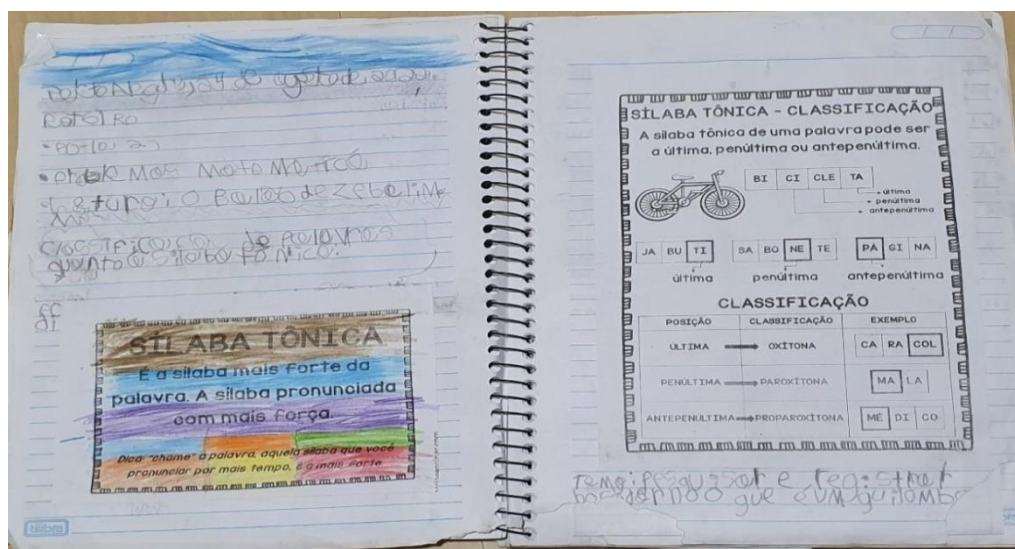 de agosto de
ROTEIRO
Leitura: O Baile de
de palavras
quanto a sílaba tônica.
SÍLABA TÔNICA
É a sílaba mais forte da
palavra. A sílaba pronunciada
com mais força.
Dica: "chame" a palavra, aquela sílaba que você
pronunciar por mais tempo, é a mais forte
SÍLABA TÔNICA - CLASSIFICAÇÃO
A sílaba tônica de uma palavra pode ser
a última, penúltima ou antepenúltima.
BI CI CLE TA
última
penúltima
antepenúltima
JA BU TI SA BO NE TE PÁ GI NA
última penúltima antepenúltima
CLASSIFICAÇÃO
POSIÇÃO CLASSIFICAÇÃO EXEMPLO
ÚLTIMA OXÍTONA CA RA COL
PENÚLTIMA PAROXÍTONA MA LA
ANTEPENÚLTIMA PROPAROXÍTONA MÉ DI CO
Tema: Pesquisar e registrar
no caderno o que é um quilombo